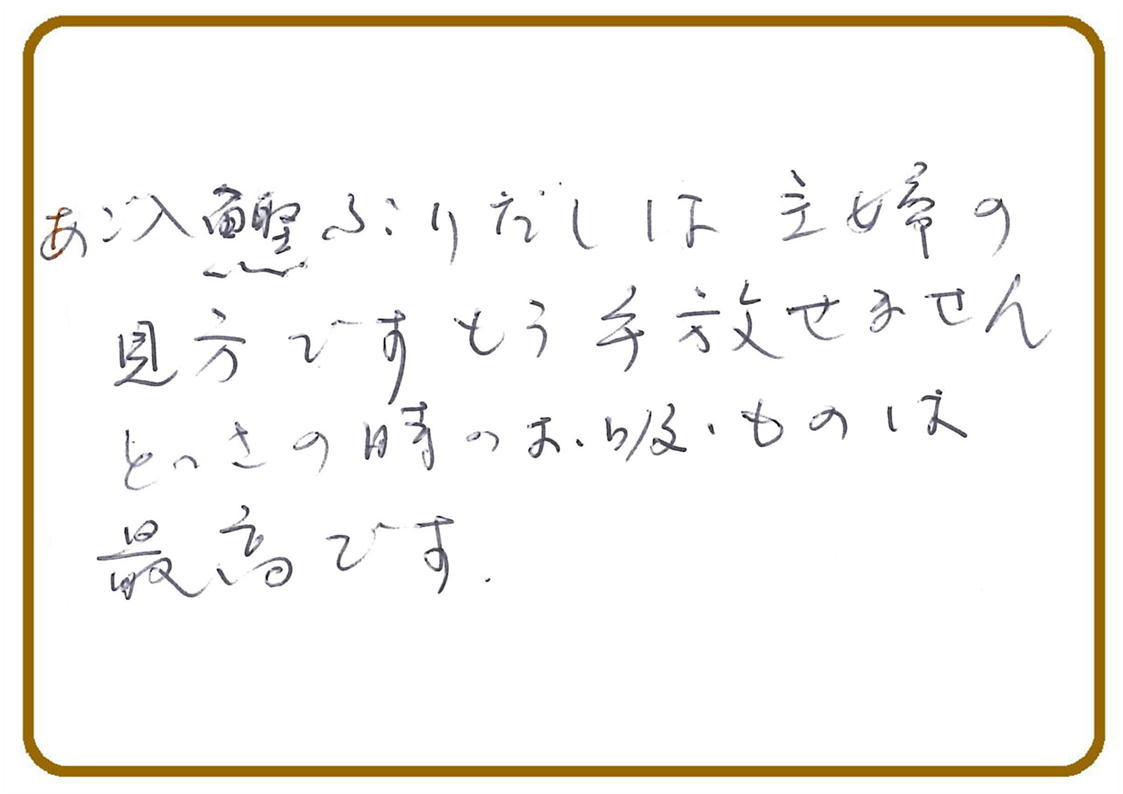 あご入鰹ふりだしは 主婦の
見方ですもう手放せません
とっさの時のお吸いものは
最高です.